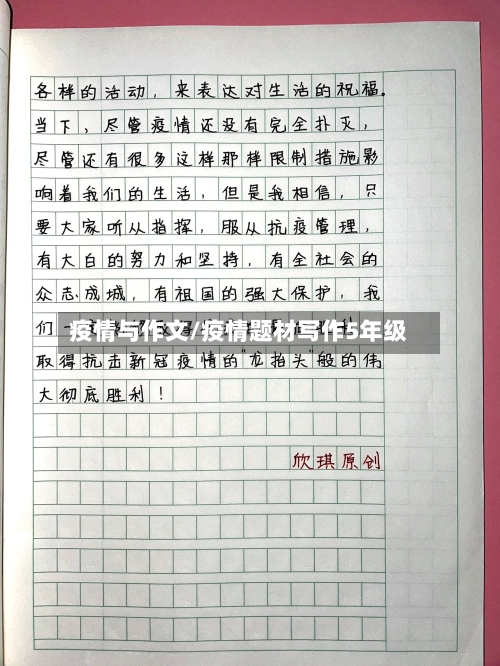 各样的活动，来表达对生活的祝福。
当下，尽管疫情还没有完全扑灭，
尽管还有很多这样那样限制措施影
响着我们的生活，但是我相信，只
要大家听从指挥，服从抗疫管理，
有大白的努力和坚持，有全社会的
众志成城，有祖国的强大保护，我
们一
疫情与作文/疫情题材写作5年级
取得抗击新冠疫情的"龙抬头"般的伟
大彻底胜利！
欣琪原创